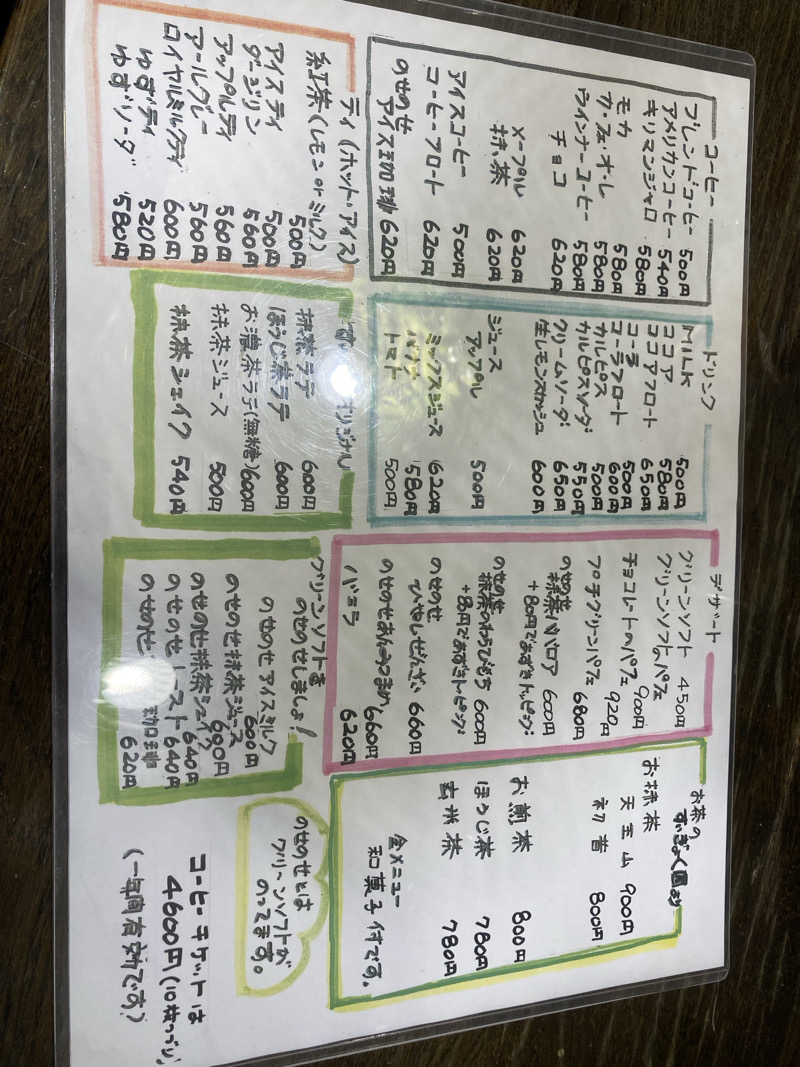 コーヒー
ブレンドコーヒー 500円
アメリカンコーヒー 540円
キリマンジャロ 580円
モカ 580円
カ・フェ・オ・レ 580円
ウインナーコーヒー 580円
チョコ 620円
メープル 620円
抹茶 620円
アイスコーヒー 500円
コーヒーフロート 620円
のせのせ
アイス珈琲 620円
ティ(ホット・アイス)
紅茶(レモン or ミルク) 500円
アイスティ 500円
ダージリン 560円
アップルティ 560円
アールグレー 560円
ロイヤルミルクティ 600円
ゆずティ 520円
ゆずソーダ 580円
ドリンク
MILK 500円
ココア 580円
ココアフロート 650円
コーラ 500円
コーラフロート 600円
カルピス 500円
カルピスソーダ 550円
クリームソーダ 650円
生レモンスカッシュ 600円
ジュース
アップル 500円
ミックスジュース 620円
580円
トマト 500円
オリジナル
抹茶ラテ 600円
ほうじ茶ラテ 600円
お濃茶ラテ(無糖) 600円
抹茶ジュース 500円
抹茶シェイク 540円
デザート
グリーンソフト 450円
グリーンソフトのパフェ 900円
チョコレートのパフェ 920円
プチグリーンパフェ 680円
のせのせ
抹茶ババロア 600円
+80円であずきトッピング
のせのせ
抹茶のわらびもち 600円
+80円であずきトッピング
のせのせ
ひやしぜんざい 660円
のせのせあんみつまめ 660円
バニラ 620円
グリーンソフトを
のせのせしましょ!
のせのせアイスミルク 600円
のせのせ抹茶ジュース 600円
のせのせ抹茶シェイク 640円
のせのせトースト 640円
のせのせ 珈琲 620円
お茶の
ずいぎょく園より
お抹茶
天王山 900円
初昔 800円
お煎茶 800円
ほうじ茶 780円
玄米茶 780円
全メニュー
和菓子付です。
のせのせとは
グリーンソフトが
のってます。
コーヒーチケットは
4600円(10枚つづり)
(一年間有効です)